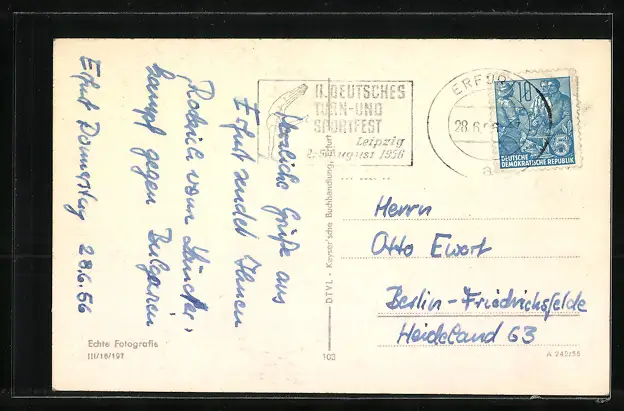 Herzliche Grüße aus
Erfurt sendet Ihnen
vom
kampf gegen Bulgarien
Erfurt Donnerstag 28.6.56
Echte Fotografie
III/18/197
II. DEUTSCHES
TURN-UND
SPORTFEST
Leipzig
2.-5. August 1956
DTVL - Keyser'sche Buchhandlung, Erfurt
103
ERFURT
28.6.56
10
DEUTSCHE
DEMOKRATISCHE REPUBLIK
Herrn
Otto Ewert
Berlin-Friedrichsfelde
Heideland 63
A 240/56